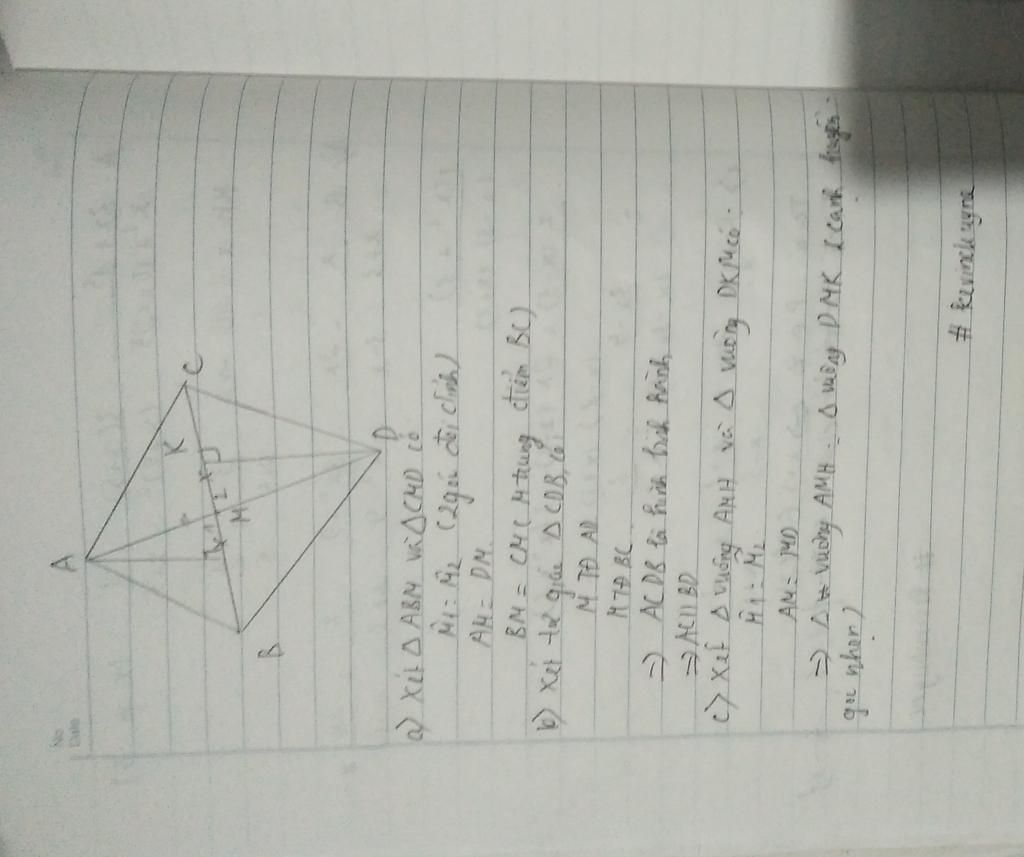 No
Date
A
B
C
D
K
M
1
2
a) Xét Δ ABM và Δ CMD có
M̂1 = M̂2 (2 góc đối đỉnh)
AM = DM
BM = CM (M trung điểm BC)
b) Xét tứ giác CDB, có
M TĐ AD
M TĐ BC
=> ACDB là hình bình hành
=> AC // BD
c) Xét Δ vuông AMH và Δ vuông DKM có.
M̂1 = M̂2
AM = MD
=> Δ vuông AMH = Δ vuông DMK (cạnh huyền-
góc nhọn)